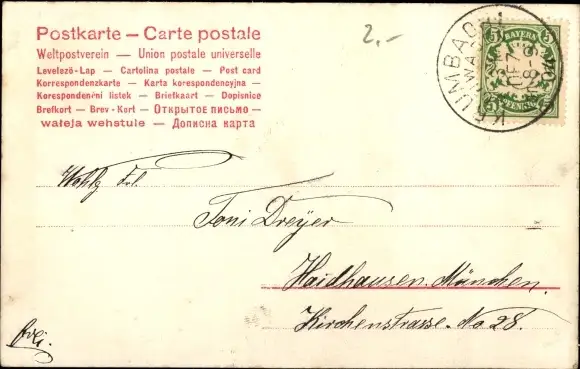 Postkarte – Carte postale
Weltpostverein — Union postale universelle
Levelező-Lap — Cartolina postale — Post card
Korrespondenzkarte — Karta korespondencyjna —
Korespondenční lístek — Briefkaart — Dopisnice
Brefkort — Brev-Kort — Открытое письмо —
wałeja wehstule — Дописна карта
2.-
KRUMBACH
5 BAYERN 5
PFENNIG
Wohlg. Frl.
Toni Dreyer
Haidhausen, München.
Kirchenstrasse No 28.